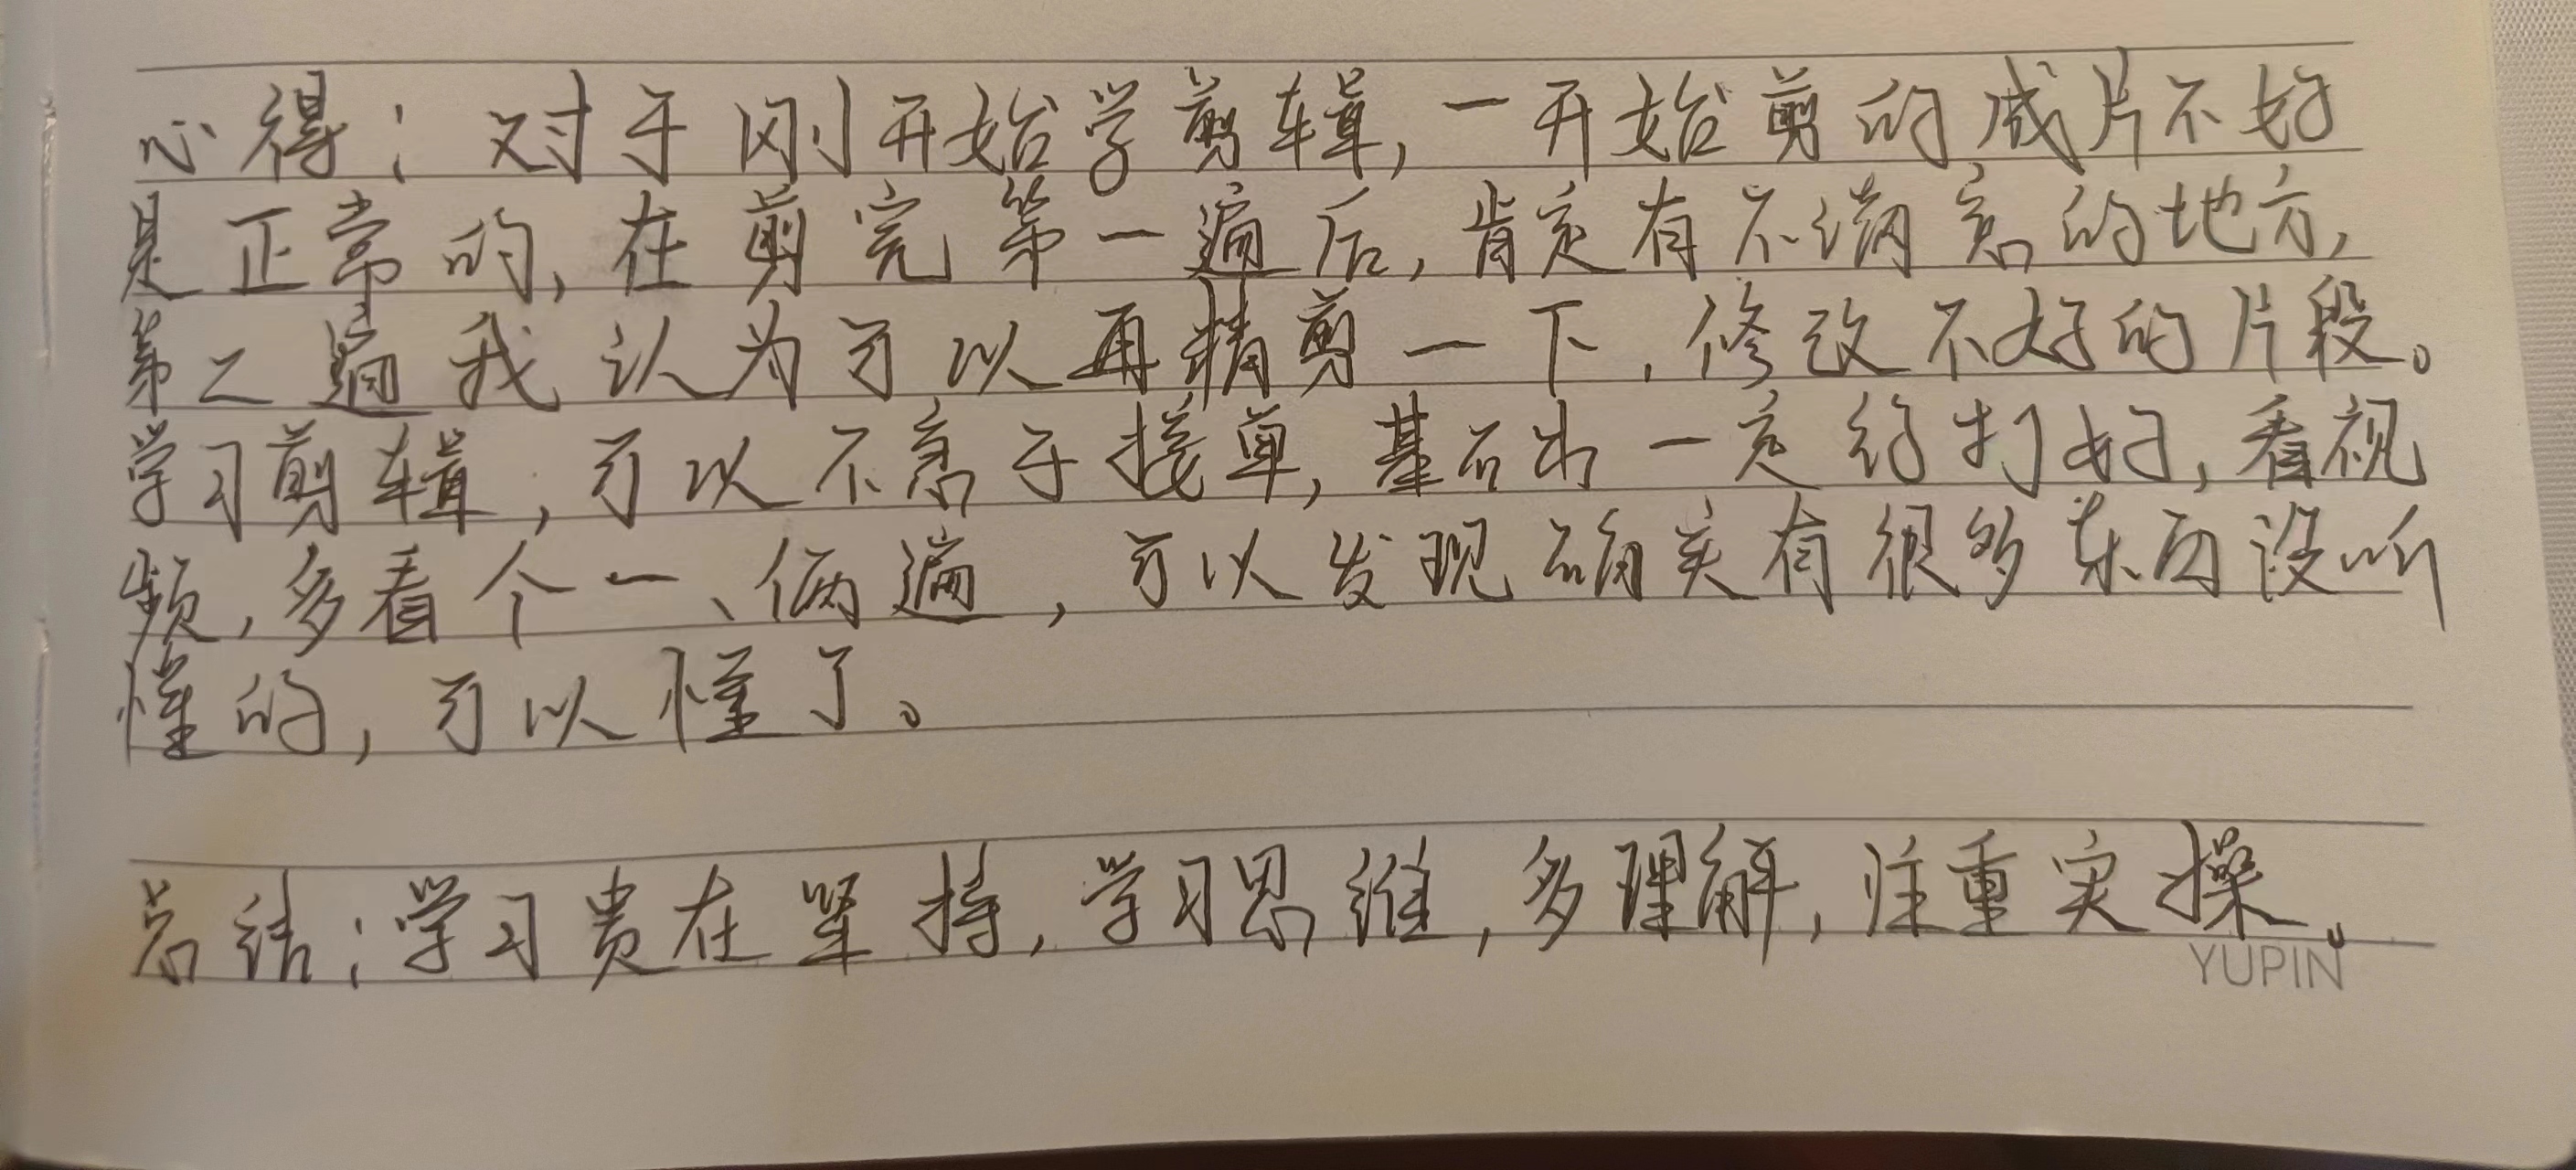 心得：对于刚开始学剪辑，一开始剪的成片不好
是正常的，在剪完第一遍后，肯定有不满意的地方，
第二遍我认为可以再精剪一下，修改不好的片段。
学习剪辑，可以不急于接单，基础一定给打好，看视
频，多看个一、俩遍，可以发现确实有很多东西没听
懂的，可以懂了。
总结：学习贵在坚持，学习思维，多理解，注重实操。
YUPIN